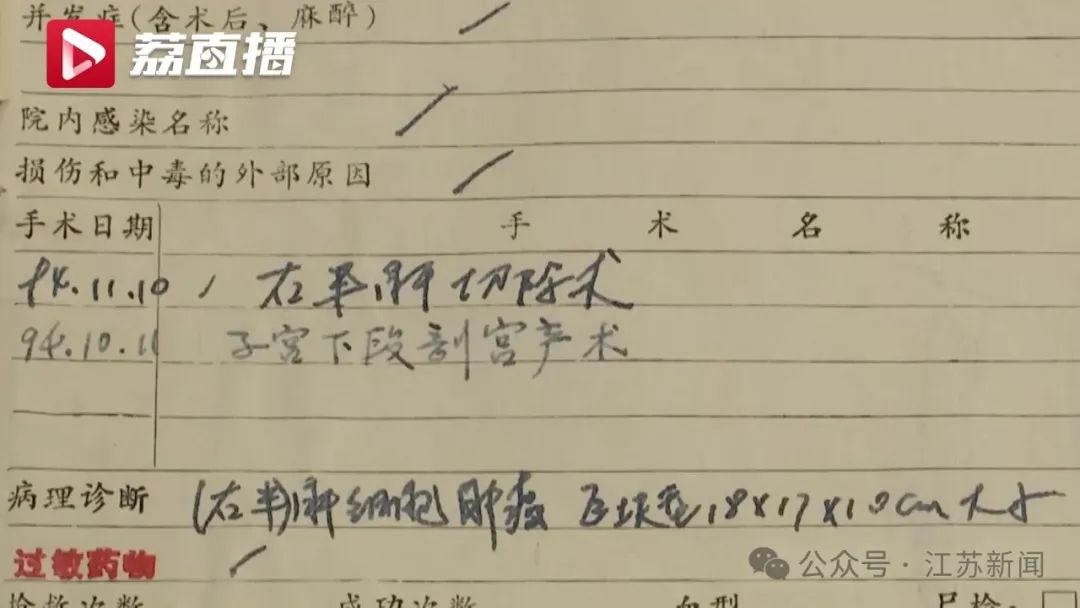 并发症(含术后、麻醉)
荔直播
院内感染名称
损伤和中毒的外部原因
手术日期 手术名称
94.11.10 右半肝切除术
94.10.11 子宫下段剖宫产术
病理诊断 (右半)肝细胞肿瘤 巨块型18×17×10cm大小
过敏药物
公众号·江苏新闻
抢救次数 成功次数 血型 尸检: